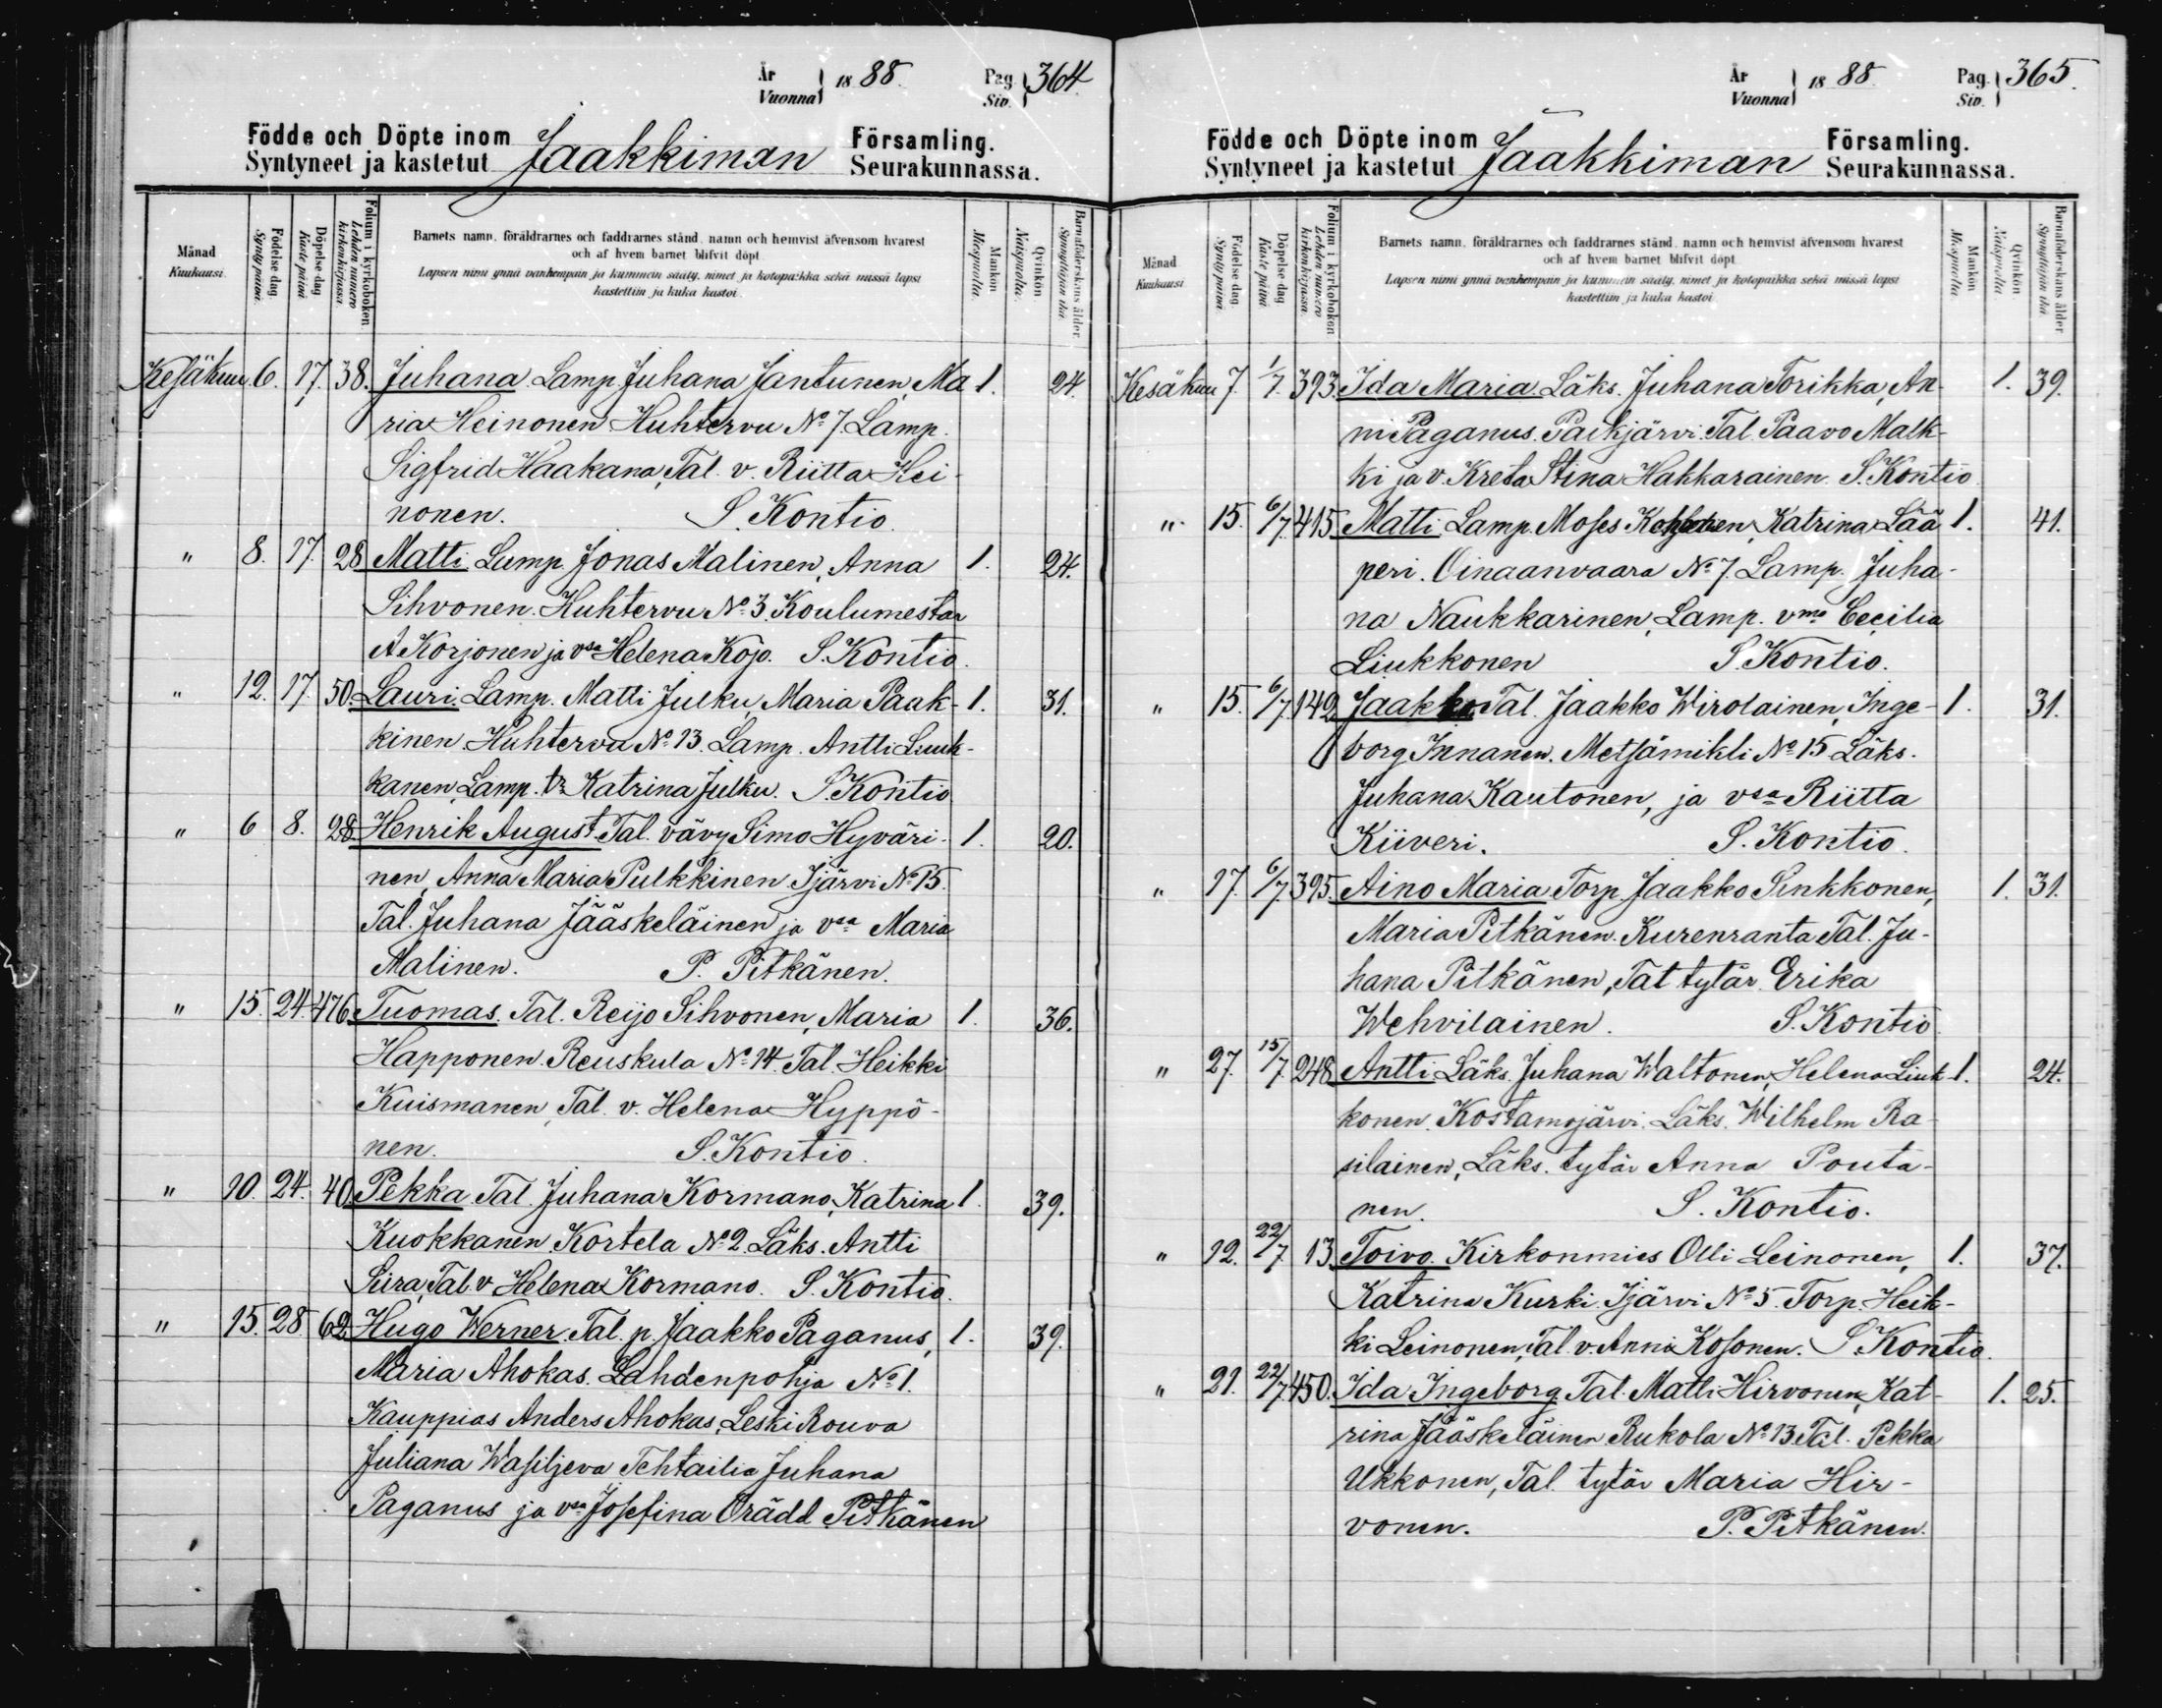 År Vuonna 1888. Pag. Siv. 364
Födde och Döpte inom Jaakkiman Församling.
Syntyneet ja kastetut Seurakunnassa.
Månad Kuukausi. Födelse dag. Synty päivä. Döpelse dag Kaste päivä Folium i kyrkoboken Lehden numero kirkonkirjassa Barnets namn, föräldrarnes och faddrarnes stånd, namn och hemvist äfvensom hvarest Mankön Miespuolia. Qvinkön Naispuolia. Barnaföderskans ålder Synnyttäjän ikä
och af hvem barnet blifvit döpt
Lapsen nimi ynnä vanhempain ja kummein sääty, nimet ja kotopaikka sekä missä lapsi
kastettiin ja kuka kastoi.
Kesäkuu 6. 17. 38. Juhana Lamp. Juhana Jantunen, Ma 1. 24.
ria Heinonen Huhtervu No 7. Lamp.
Sigfrid Haakana, Tal. v. Riitta Hei-
nonen. S. Kontio.
" 8. 17. 28 Matti Lamp. Jonas Malinen, Anna 1. 24.
Sihvonen. Huhtervu No 3. Koulumestar
A Korjonen ja vsa Helena Köjo. S. Kontio.
" 12. 17. 50. Lauri. Lamp. Matti Julku, Maria Paak- 1. 31.
kinen Huhtervu No 13. Lamp. Antti Liuk-
kanen, Lamp. tr Katrina Julku. S. Kontio
" 6 8. 28. Henrik August. Tal. vävy Simo Hyväri- 1. 20.
nen, Anna Maria Pulkkinen Ijärvi No 15.
Tal. Juhana Jääskeläinen ja vsa Maria
Malinen. P. Pitkänen.
" 15. 24. 476. Tuomas. Tal. Reijo Sihvonen, Maria 1. 36.
Happonen. Reuskula No 14. Tal. Heikki
Kuismanen, Tal. v. Helena Hyppö-
nen. S. Kontio.
" 10. 24. 40. Pekka. Tal. Juhana Kormano, Katrina 1. 39.
Kuokkanen. Kortela No 2. Läks. Antti
Siira, Tal. v Helena Kormano. S. Kontio.
" 15. 28 62. Hugo Werner. Tal. p. Jaakko Paganus, 1. 39.
Maria Ahokas. Lahdenpohja No 1.
Kauppias Anders Ahokas, Leski Rouva
Juliana Wasiljeva Tehtailia Juhana
Paganus ja vsa Josefina Orädd Pitkänen
År Vuonna 1888 Pag. Siv. 365.
Födde och Döpte inom Jaakkiman Församling.
Syntyneet ja kastetut Seurakunnassa.
Månad Kuukausi Födelse dag. Synty päivä Döpelse dag Kaste päivä Folium i kyrkoboken Lehden numero kirkonkirjassa Barnets namn, föräldrarnes och faddrarnes stånd, namn och hemvist äfvensom hvarest Mankön Miespuolia Qvinkön. Naispuolia. Barnaföderskans ålder Synnyttäjän ikä
och af hvem barnet blifvit döpt
Lapsen nimi ynnä vanhempain ja kummein sääty, nimet ja kotopaikka sekä missä lapsi
kastettiin ja kuka kastoi
Kesäkuu 7. 1/7. 393. Ida Maria. Läks. Juhana Torikka, An- 1. 39.
ni Paganus. Paikjärvi. Tal. Paavo Malk-
ki ja v. Kreta Stina Hakkarainen. S. Kontio
" 15. 6/7. 415 Matti. Lamp. Moses Katrina Lää 1. 41.
peri. Oinaanvaara No 7. Lamp. Juha-
na Naukkarinen, Lamp. vmo Cecilia
Liukkonen S. Kontio.
" 15. 6/7. 142 Jaakko Tal. Jaakko Wirolainen, Inge- 1. 31.
borg Innanen. Metsämikli No 15 Läks.
Juhana Kautonen, ja vsa Riitta
Kiiveri. S. Kontio.
" 17. 6/7. 395. Aino Maria Torp. Jaakko Sinkkonen, 1. 31.
Maria Pitkänen. Kurenranta Tal. Ju-
hana Pitkänen, Tal tytär Erika
Wehvilainen. S. Kontio
" 27. 15/7. 248. Antti Läks. Juhana Waltonen, Helena Liuk- 1. 24.
konen. Kostamojärvi. Läks. Wilhelm Ra-
silainen, Läks. tytär Anna Pouta-
nen. S. Kontio.
" 12. 22/7 13. Toivo. Kirkonmies Olli Leinonen, 1. 37.
Katrina Kurki. Ijärvi No 5. Torp. Heik-
ki Leinonen, Tal. v. Anni Kosonen. S. Kontio.
" 21. 22/7. 450. Ida Ingeborg Tal. Matti Hirvonen, Kat- 1. 25.
rina Jääskeläinen Rukola No 13 Tal. Pekka
Ukkonen, Tal. tytär Maria Hir-
vonen. P. Pitkänen.